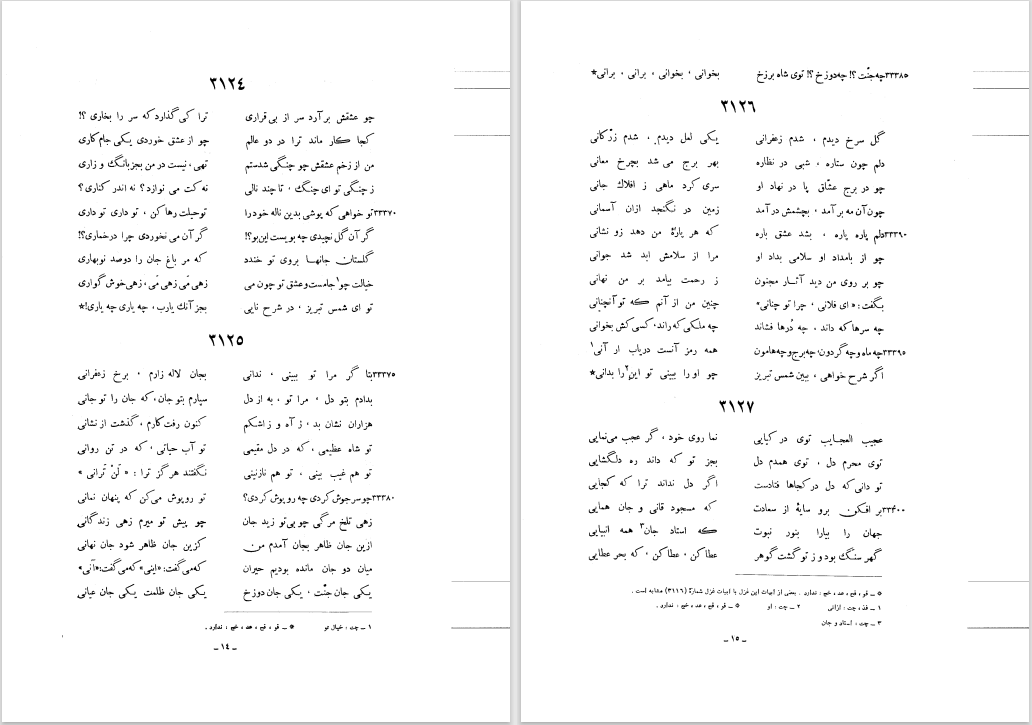 ۳۱۲٤
چو عشقش برآرد سر از بی‌قراری ترا کی گذارد که سر را بخاری ؟!
کجا کار ماند ترا در دو عالم چو از عشق خوردی یکی جام کاری
من از زخم عشقش چو چنگی شدستم تهی، نیست در من بجز بانگ و زاری
ز چنگی تو ای چنگ ، تا چند نالی نه کت می نوازد ؟ نه اندر کناری ؟
۳۳۳۷۰ تو خواهی که پوشی بدین ناله خود را تو حیلت رها کن ، تو داری تو داری
گر آن گل نچیدی چه بویست این بو ؟! گر آن می نخوردی چرا در خماری ؟!
گلستان جانها بروی تو خندد که مر باغ جان را دوصد نوبهاری
خیالت چو۱ جامست وعشق تو چون می زهی می زهی می، زهی خوش گواری
تو ای شمس تبریز ، در شرح نایی بجز آنك یارب، چه یاری چه یاری!*
۳۱۲٥
۳۳۳۷٥ بتا گر مرا تو ببینی ، ندانی بجان لاله زارم ، برخ زعفرانی
بدادم بتو دل ، مرا تو ، به از دل سپارم بتو جان، که جان را تو جانی
هزاران نشان بد ، ز آه و ز اشکم کنون رفت کارم ، گذشت از نشانی
تو شاه عظیمی ، که در دل مقیمی تو آب حیاتی ، که در تن روانی
تو هم غیب بینی ، تو هم نازنینی نگفتند هر گز ترا : « لَنْ تَرانی »
۳۳۳۸۰ چو سرجوش کردی چه روپوش کردی؟ تو روپوش می‌کن که پنهان نمانی
زهی تلخ مرگی چو بی‌تو زید جان چو پیش تو میرم زهی زندگانی
ازین جان ظاهر بجان آمدم من کزین جان ظاهر شود جان نهانی
میان دو جان مانده بودیم حیران که می‌گفت: «اینی» که می‌گفت: «آنی»
یکی جان جنّت ، یکی جان دوزخ یکی جان ظلمت یکی جان عیانی
۱ ــ چت : خیال تو * ــ فو ، قح ، عد ، خج : ندارد .
ــ ۱٤ ــ
۳۳۳۸٥ چه جنّت ؟! چه دوزخ ؟! توی شاه برزخ بخوانی ، بخوانی ، برانی ، برانی*
۳۱۲٦
گل سرخ دیدم ، شدم زعفرانی یکی لعل دیدم ، شدم زرّ کانی
دلم چون ستاره ، شبی در نظاره بهر برج می شد بچرخ معانی
چو در برج عشّاق پا در نهاد او سری کرد ماهی ز افلاك جانی
چون آن مه بر آمد ، بچشمش درآمد زمین در نگنجد ازان آسمانی
۳۳۳۹۰ دلم پاره پاره ، بشد عشق باره که هر پارۀ من دهد زو نشانی
چو از بامداد او سلامی بداد او مرا از سلامش ابد شد جوانی
چو بر روی من دید آثار مجنون ز رحمت بیامد بر من نهانی
بگفت: « ای فلانی ، چرا تو چنانی» چنین من از آنم که تو آنچنانی
چه سرها که داند ، چه دُرها فشاند چه ملکی که راند، کسی کش بخوانی
۳۳۳۹٥ چه ماه و چه گردون، چه برج و چه هامون همه رمز آنست دریاب ار آنی۱
اگر شرح خواهی ، ببین شمس تبریز چو او را ببینی تو این۲ را بدانی*
۳۱۲۷
عجیب العجایب توی در کیایی نما روی خود ، گر عجب می‌نمایی
توی محرم دل ، توی همدم دل بجز تو که داند ره دلگشایی
تو دانی که دل در کجاها فتادست اگر دل نداند ترا که کجایی
۳۳٤۰۰ بر افکن برو سایۀ از سعادت که مسجود قانی و جان همایی
جهان را بیارا بنور نبوت که استاد جان۳ همه انبیایی
گهر سنگ بود و ز تو گشت گوهر عطا کن ، عطا کن ، که بحر عطایی
* ــ فو ، قح ، عد ، خج : ندارد . بعضی از ابیات این غزل با ابیات غزل شمارۀ (۳۱۱٦) مشابه است .
۱ ــ فذ ، چت : ارانی ۲ ــ چت : او * ــ فو ، قح ، عد ، خج : ندارد .
۳ ــ چت : استاد و جان
ــ ۱٥ ــ